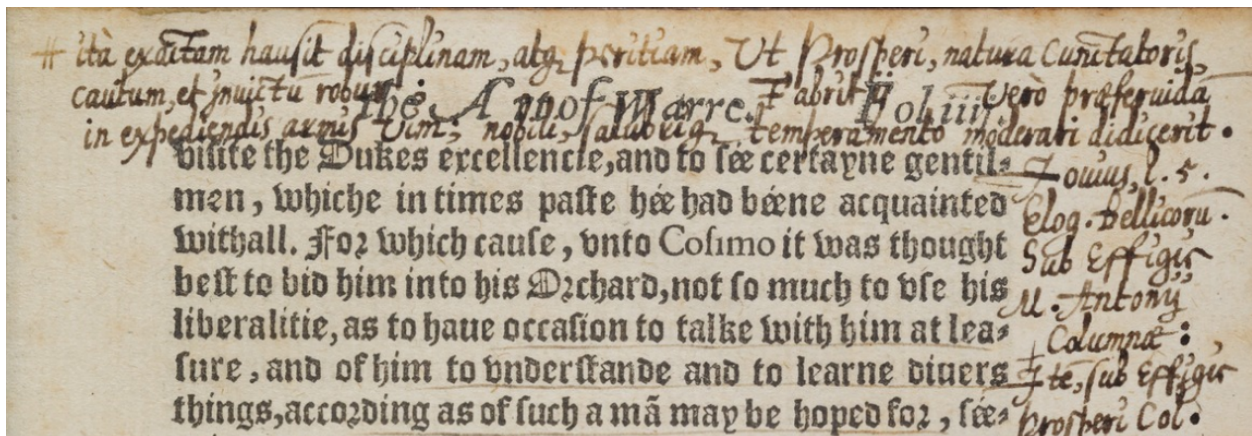 # ità exactam hausit disciplinam, atq, peritiam, Ut Prosperi, natura Cunctatoris,
cautum, et jnvictū robur; Fabritij Verò præferuidā
The Art of Warre. Fol. iiij.
in expediendis armis Vim; nobili, salubriq, temperamento moderari didicerit.
visite the Dukes excellencie, and to sée certayne gentil-
men, whiche in times paste hée had béene acquainted
withall. For which cause, vnto Cosimo it was thought
best to bid him into his Orchard, not so much to vse his
liberalitie, as to haue occasion to talke with him at lea-
sure, and of him to vnderstande and to learne diuers
things, according as of such a mã may be hoped for, sée-
Jouius, l. 5.
Elog. bellicorū.
Sub Effigie
M. Antonij
Columnæ:
Itē, sub Effigie
Prosperi Col.